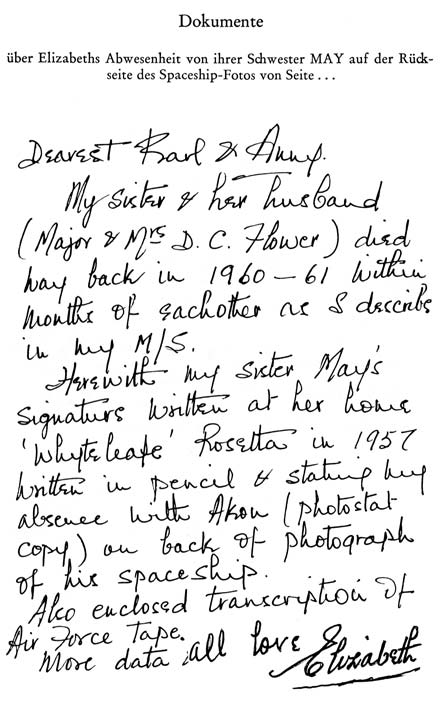 Dokumente
über Elizabeths Abwesenheit von ihrer Schwester MAY auf der Rück-
seite des Spaceship-Fotos von Seite ...
Dearest Karl & Anny.
My sister & her husband
(Major & Mrs D. C. Flower) died
way back in 1960-61 within
months of eachother as I describe
in my M/S.
Herewith my sister May's
signature written at her home
'Whyteleafe' Rosetta in 1957
written in pencil & stating my
absence with Akon (photostat
copy) on back of photograph
of his spaceship.
Also enclosed transcription of
Air Force Tape.
More data all love Elizabeth